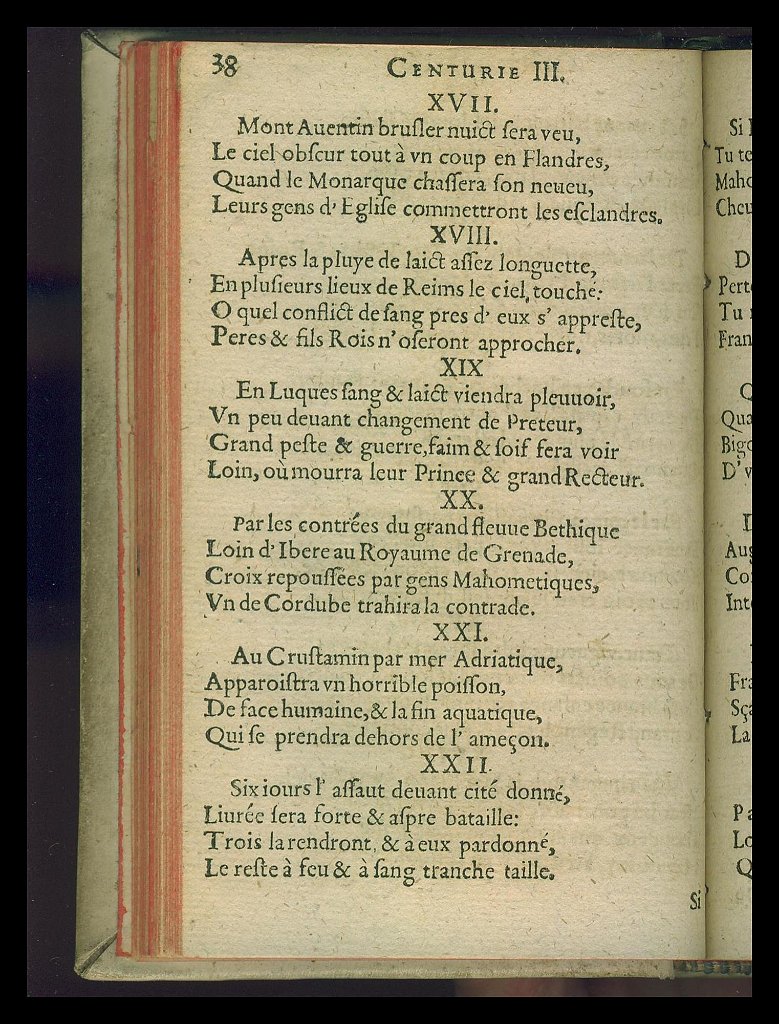 38 CENTURIE III.
XVII.
Mont Auentin bruſler nuict ſera veu,
Le ciel obſcur tout à vn coup en Flandres,
Quand le Monarque chaſſera ſon neueu,
Leurs gens d' Egliſe commettront les eſclandres.
XVIII.
Apres la pluye de laict aſſez longuette,
En pluſieurs lieux de Reims le ciel touché:
O quel conflict de ſang pres d' eux s' appreſte,
Peres & fils Rois n' oſeront approcher.
XIX
En Luques ſang & laict viendra pleuuoir,
Vn peu deuant changement de Preteur,
Grand peſte & guerre, faim & ſoif fera voir
Loin, où mourra leur Prince & grand Recteur.
XX.
Par les contrées du grand fleuue Bethique
Loin d' Ibere au Royaume de Grenade,
Croix repouſſées par gens Mahometiques,
Vn de Cordube trahira la contrade.
XXI.
Au Cruſtamin par mer Adriatique,
Apparoiſtra vn horrible poiſſon,
De face humaine, & la fin aquatique,
Qui ſe prendra dehors de l' ameçon.
XXII.
Six iours l' aſſaut deuant cité donné,
Liurée ſera forte & aſpre bataille:
Trois la rendront, & à eux pardonné,
Le reſte à feu & à ſang tranche taille.
Si
Si
Tu
Tu